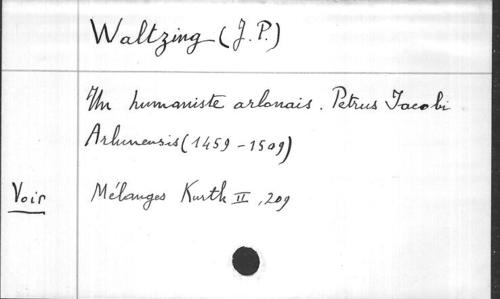 Waltzing (J.P.)
Un humaniste arlonais. Petrus Jacobi
Arlunensis (1459-1509)
Voir Mélanges Kurth II, 209